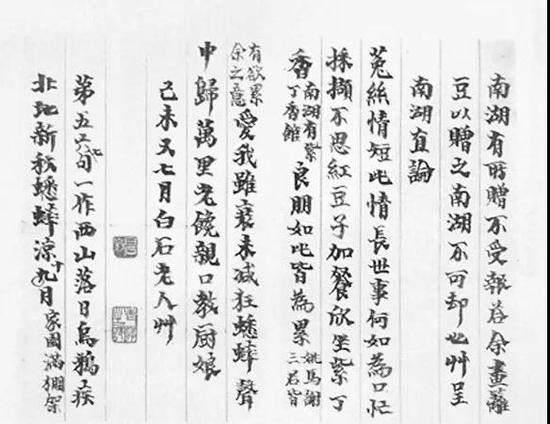 南湖有所贈不受報答余畫蘺
豆以贈之南湖不可却也艸呈
南湖直論
菟絲情短此情長世事何如為口忙
採擷不思紅豆子加餐欣坐紫丁
香南湖有紫丁香館良朋如此皆為累姚馬謝三君皆
有欲累余之意愛我雖衰未減狂蟋蟀聲
中歸萬里老饞親口教厨娘
己未又七月白石老人艸
第五六句一作西山落日烏鴉疾
北地新秋蟋蟀涼九月家園滿棚架